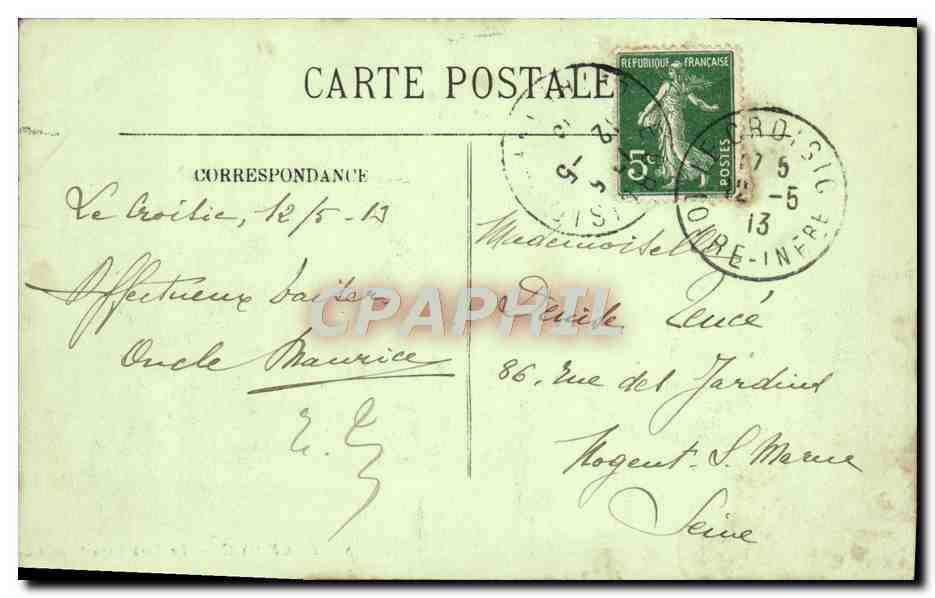 CARTE POSTALE
REPUBLIQUE FRANÇAISE
5c
POSTES
LE CROISIC
17 5
12 -5
13
LOIRE-INFRE
CORRESPONDANCE
Le Croisic, 12/5-13
Affectueux baisers
Oncle Maurice
Mademoiselle
Denise Zencé
86, rue des Jardins
Nogent. S. Marne
Seine
CPAPHIL